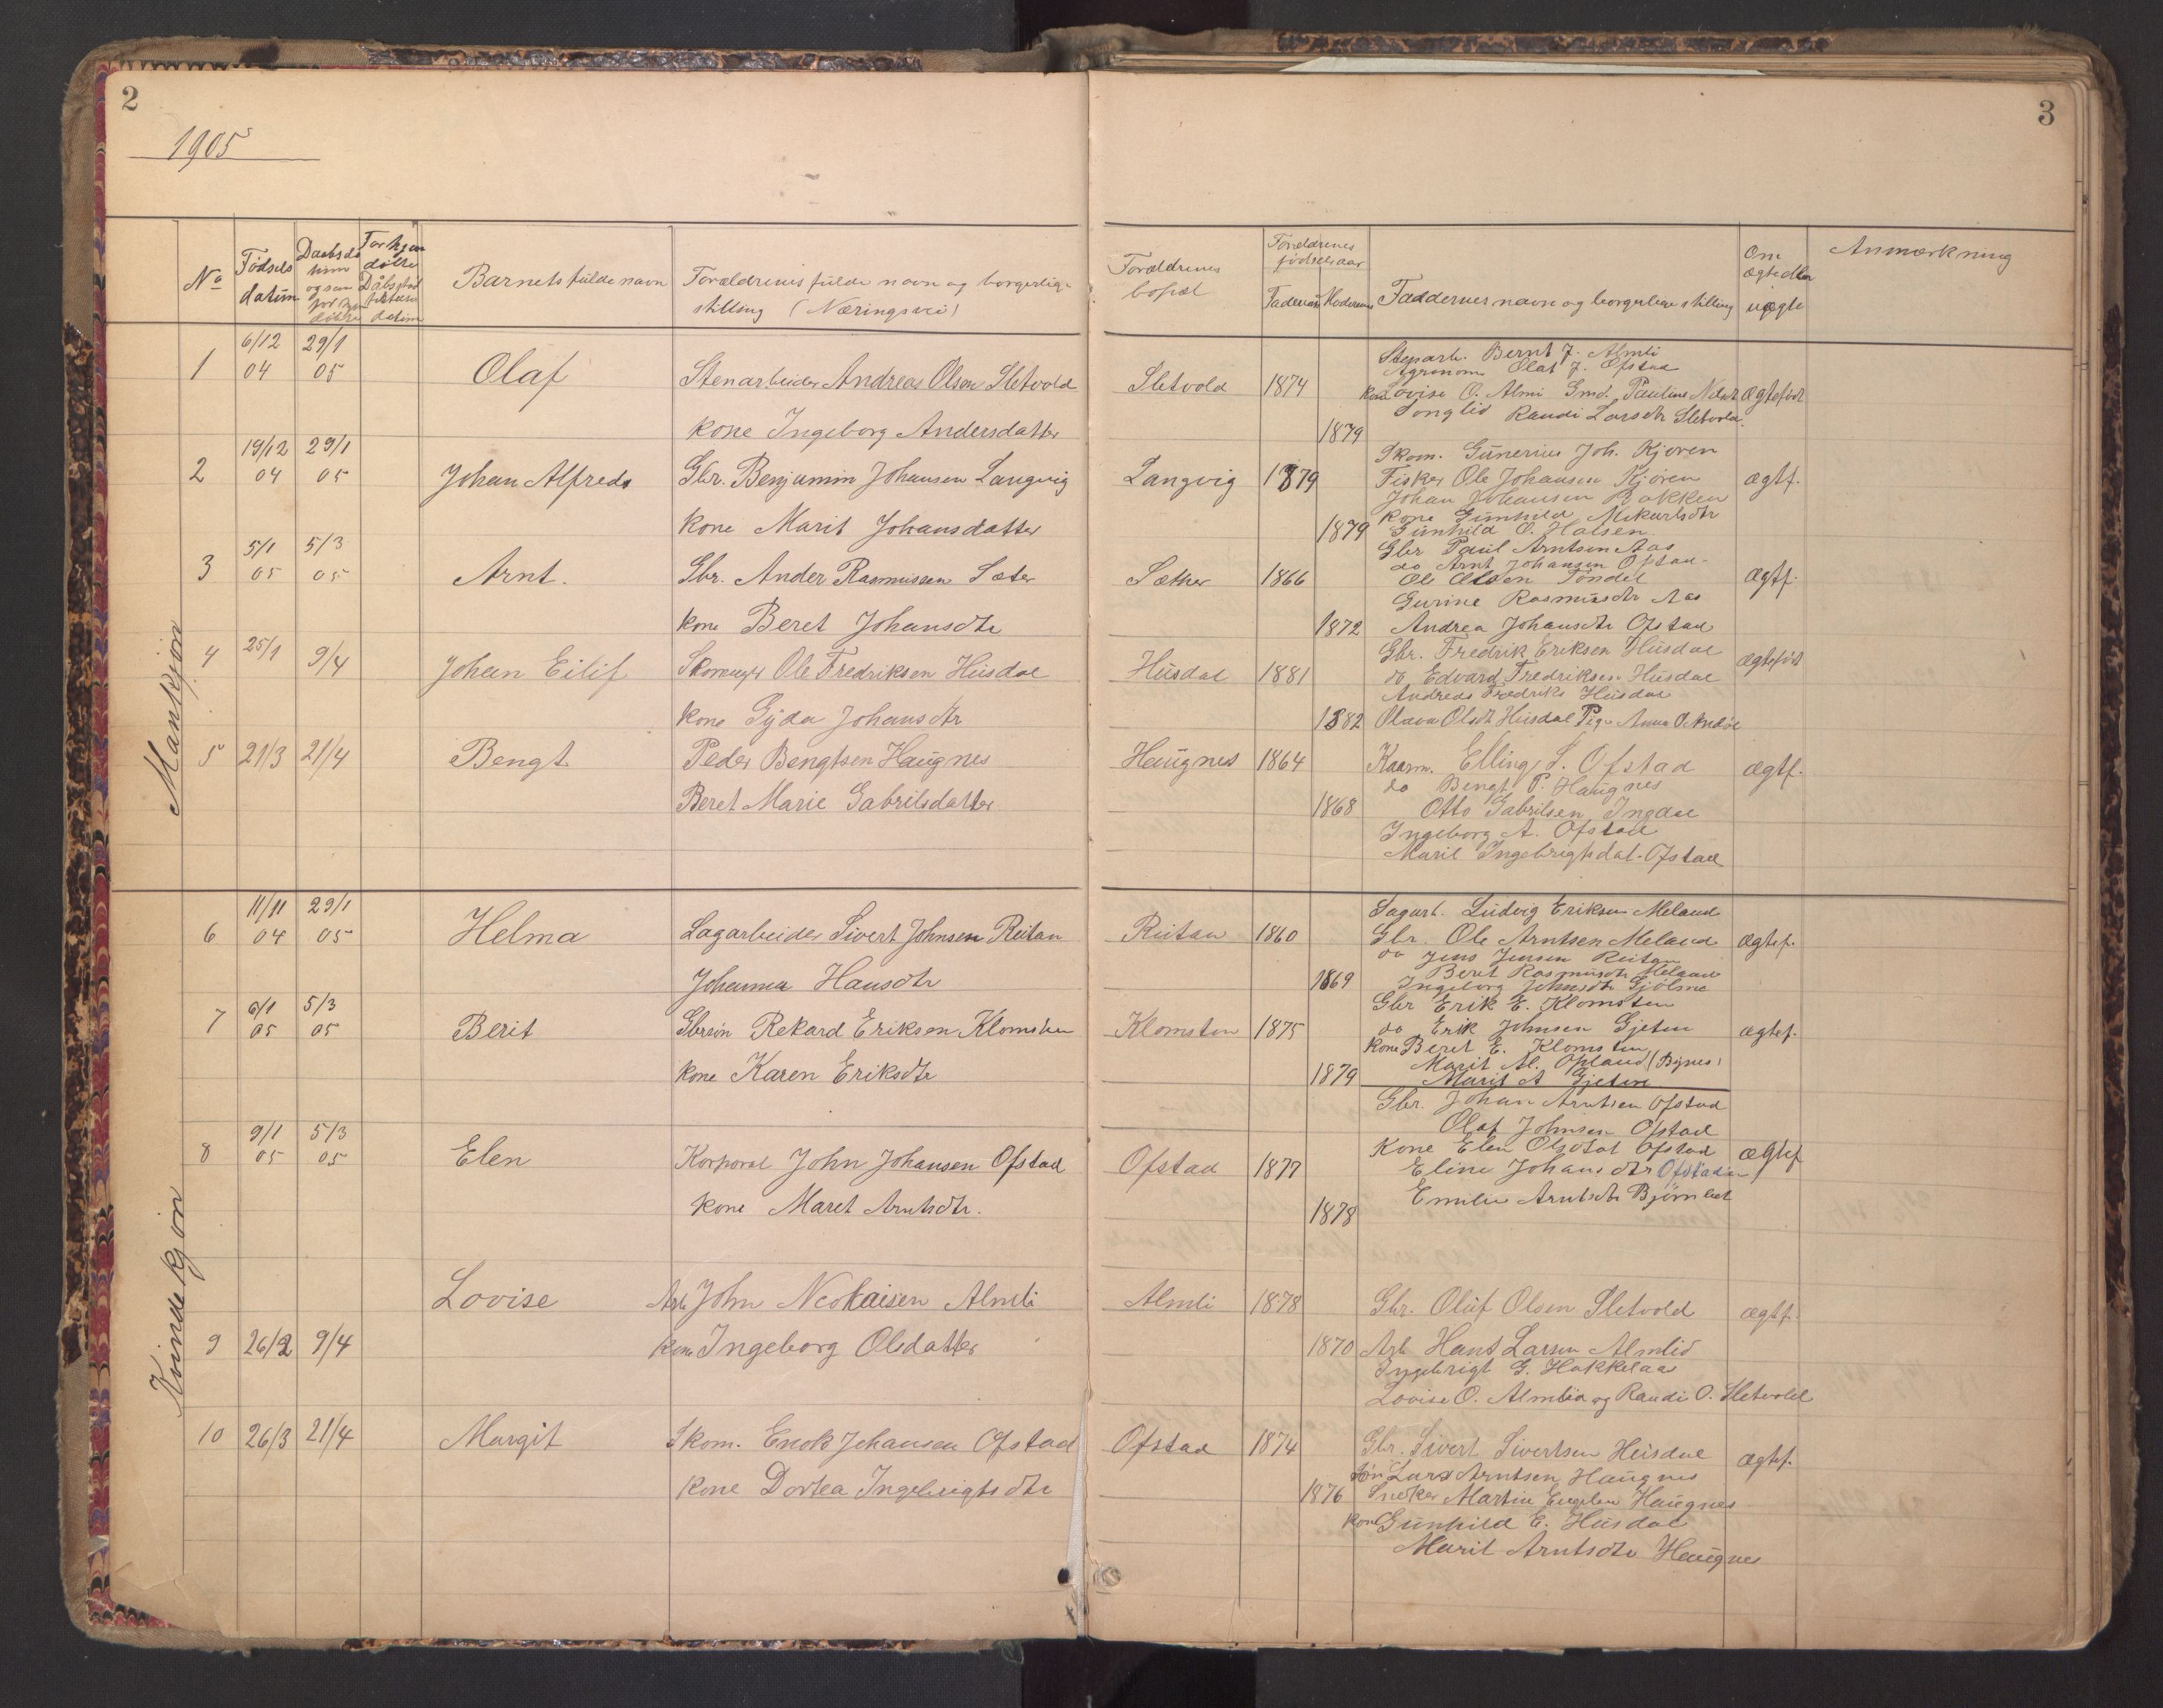 2
1905
No
Fødsels datum
Barnets fulde navn
Forældrenes fulde navn og borgerlige stilling (Næringsvei)
Mankjøn
1
6/12 04
29/1 05
Olaf
Stenarbeider Andreas Olsen Sletvold
kone Ingeborg Andersdatter
2
19/12 04
29/1 05
Johan Alfreds
Gbr. Benjamin Johansen Langvig
kone Marit Johansdatter
3
5/1 05
5/3 05
Arnt.
Gbr. Ander Rasmussen Sæter
kone Beret Johansdtr
4
25/1
9/4
Johan Eilif
Skomager Ole Fredriksen Husdal
kone Gyda Johansdtr
5
21/3
21/4
Bengt
Peder Bengtsen Haugnes
Beret Marie Gabrilsdatter
Kvindekjøn
6
11/11 04
29/1 05
Helma
Sagarbeider Sivert Johnsen Reitan
Johanna Hansdtr
7
6/1 05
5/3 05
Berit
Gbrsøn Rekard Eriksen Klomsten
kone Karen Eriksdtr
8
9/1 05
5/3 05
Elen
Korporal John Johansen Ofstad
kone Maret Arntsdtr.
9
26/2
9/4
Lovise
Arb John Almli
kone Ingeborg Olsdatter
10
26/3
21/4
Margit
Skom. Enok Johansen Ofstad
kone Dortea Ingebrigtsdtr
3
Forældrenes bopæl
Forældrenes fødselsaar
Faderens
Moderens
Faddernes navn og borgerlige stilling
Om ægte eller uægte
Anmærkning
Sletvold
1874
1879
Stenarb. Bernt J. Almli
Agronom Olaf J. Ofstad
kone Lovise O. Almli Gmd. Pauline
Songlid Randi Larsdtr Sletvold.
Ægtefødt
Langvig
1879
1879
Skom. Gunerius Joh. Kjøren
Fisker Ole Johansen Kjøren
Johan Johansen Bakken
kone Gunhild
Gunhild O. Halsen
ægtf.
Sæther
1866
1872
Gbr Paul Arntsen Aas
do Arnt Johansen Ofstad
Ole Olsen
Gurine Rasmusdtr Aas
Andrea Johansdtr Ofstad
Ægtf.
Husdal
1881
1882
Gbr. Fredrik Eriksen Husdal
do Edvard Fredriksen Husdal
Andreas Fredriks Husdal
Olava Olsdtr Husdal Pige Anna
ægtefødt
Haugnes
1864
1868
Kaarm. Elling S. Ofstad
do Bengt P. Haugnes
Otto Gabrilsen Ingdal
Ingeborg A. Ofstad
Marit Ingebrigtsdat. Ofstad
ægtf.
Reitan
1860
1869
Sagarb. Ludvig Eriksen Meland
Gbr. Ole Arntsen Meland
do Jens Jensen Reitan
Beret Rasmusdtr Meland
Ingeborg Johnsdtr Gjølme
ægtef.
Klomsten
1875
1879
Gbr Erik E. Klomsten
do Erik Johnsen Gjeten
kone Beret E. Klomsten
Marit Al. Opland (Bynes)
Marit A Gjeten
ægtef.
Ofstad
1877
1878
Gbr. Johan Arntsen Ofstad
Olaf Johnsen Ofstad
kone Elen Olsdat Ofstad
Eline Johansdtr Ofstad
Emilie Arntsdtr
ægtef
Almli
1878
1870
Gbr. Oluf Olsen Sletvold
Arb Hans Larsen Almlid
Ingebrigt G. Hokkelaas
Lovise O. Almlia og Randi O. Sletvold
ægtf.
Ofstad
1874
1876
Gbr. Sivert Sivertsen Husdal
Søn Lars Arntsen Haugnes
Sneker Martin Haugnes
kone Gunhild E. Husdal
Marit Arntsdtr Haugnes
ægtef.